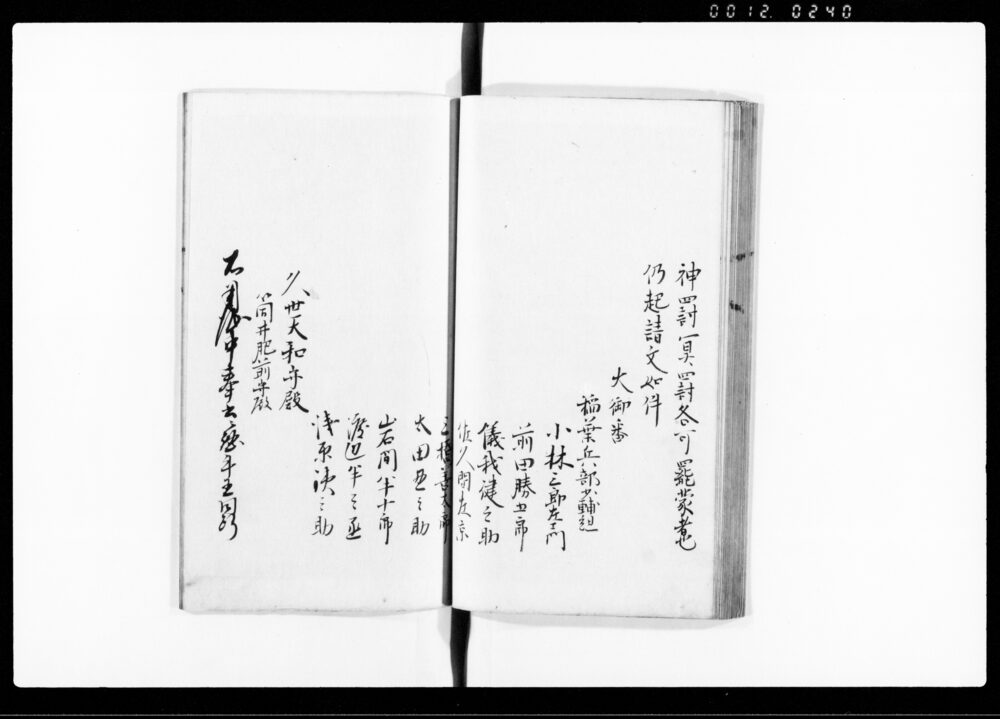 0012. 0240
神罰冥罰各可罷蒙者也
仍起請文如件
大御番
稲葉兵部少輔組
小林三郎左衛門
前田勝五郎
儀我健之助
佐久間左京
三橋善太郎
太田西之助
岩間半十郎
渡辺半之丞
浅原決之助
久世大和守殿
筒井肥前守殿